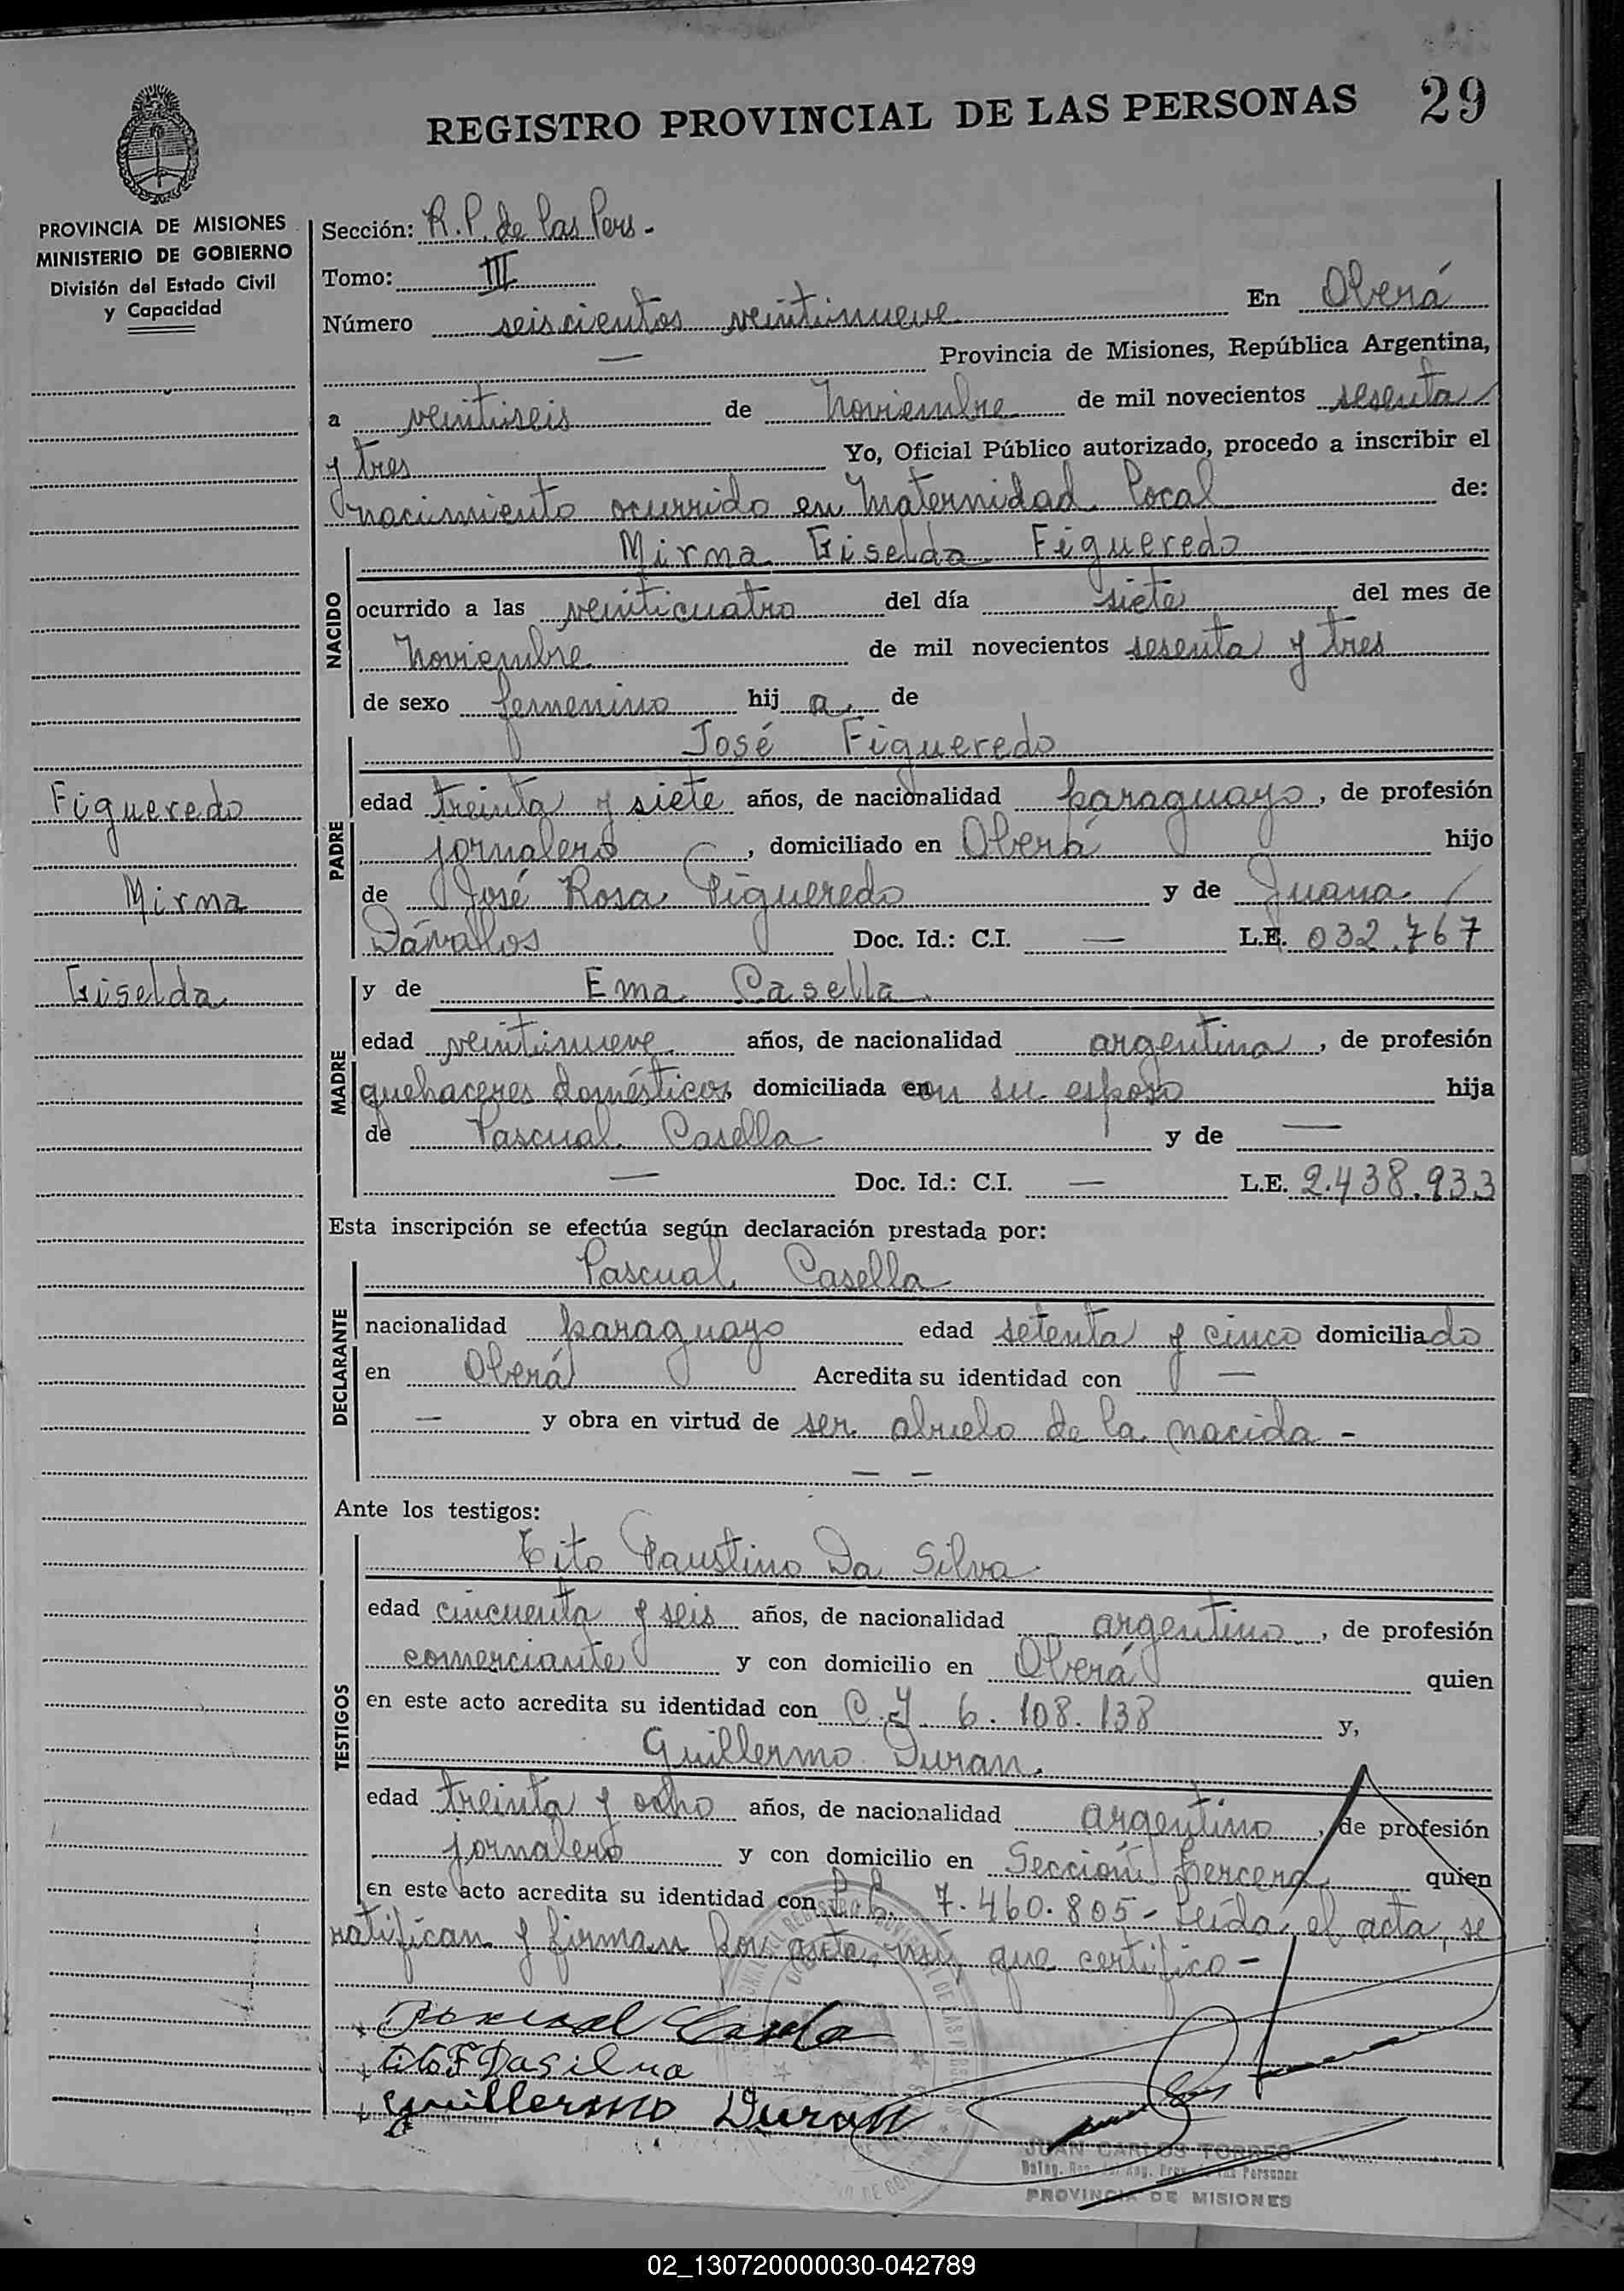 REGISTRO PROVINCIAL DE LAS PERSONAS 29
PROVINCIA DE MISIONES
MINISTERIO DE GOBIERNO
División del Estado Civil
y Capacidad
Figueredo
Mirma
Giselda
Sección: R.P. de las Pers.-
Tomo: III
Número seiscientos veintinueve En Oberá
— Provincia de Misiones, República Argentina,
a veintiseis de Noviembre de mil novecientos sesenta
y tres Yo, Oficial Público autorizado, procedo a inscribir el
nacimiento ocurrido en Maternidad Local de:
NACIDO
Mirma Giselda Figueredo
ocurrido a las veinticuatro del día siete del mes de
Noviembre de mil novecientos sesenta y tres
de sexo femenino hij a. de
PADRE
José Figueredo
edad treinta y siete años, de nacionalidad paraguayo, de profesión
jornalero, domiciliado en Oberá hijo
de José Rosa Figueredo y de Juana
Dávalos Doc. Id.: C.I. — L.E. 032.767
MADRE
y de Ema Casella.
edad veintinueve años, de nacionalidad argentina, de profesión
quehaceres domésticos, domiciliada en con su esposo hija
de Pascual Casella y de —
— Doc. Id.: C.I. — L.E. 2.438.933
Esta inscripción se efectúa según declaración prestada por:
DECLARANTE
Pascual Casella
nacionalidad paraguayo edad setenta y cinco domiciliado
en Oberá Acredita su identidad con —
— y obra en virtud de ser abuelo de la nacida -
— —
Ante los testigos:
TESTIGOS
Tito Faustino Da Silva
edad cincuenta y seis años, de nacionalidad argentino, de profesión
comerciante y con domicilio en Oberá quien
en este acto acredita su identidad con C.I. 6.108.138 y,
Guillermo Duran.
edad treinta y ocho años, de nacionalidad argentino, de profesión
jornalero y con domicilio en Sección tercera quien
en este acto acredita su identidad con 7.460.805- Leída el acta, se
ratifican y firman por ante mí que certifico-
Pascual Casella
Tito F Dasilva
Guillermo Duran
JUAN CARLOS TORRES
PROVINCIA DE MISIONES
02_130720000030-042789